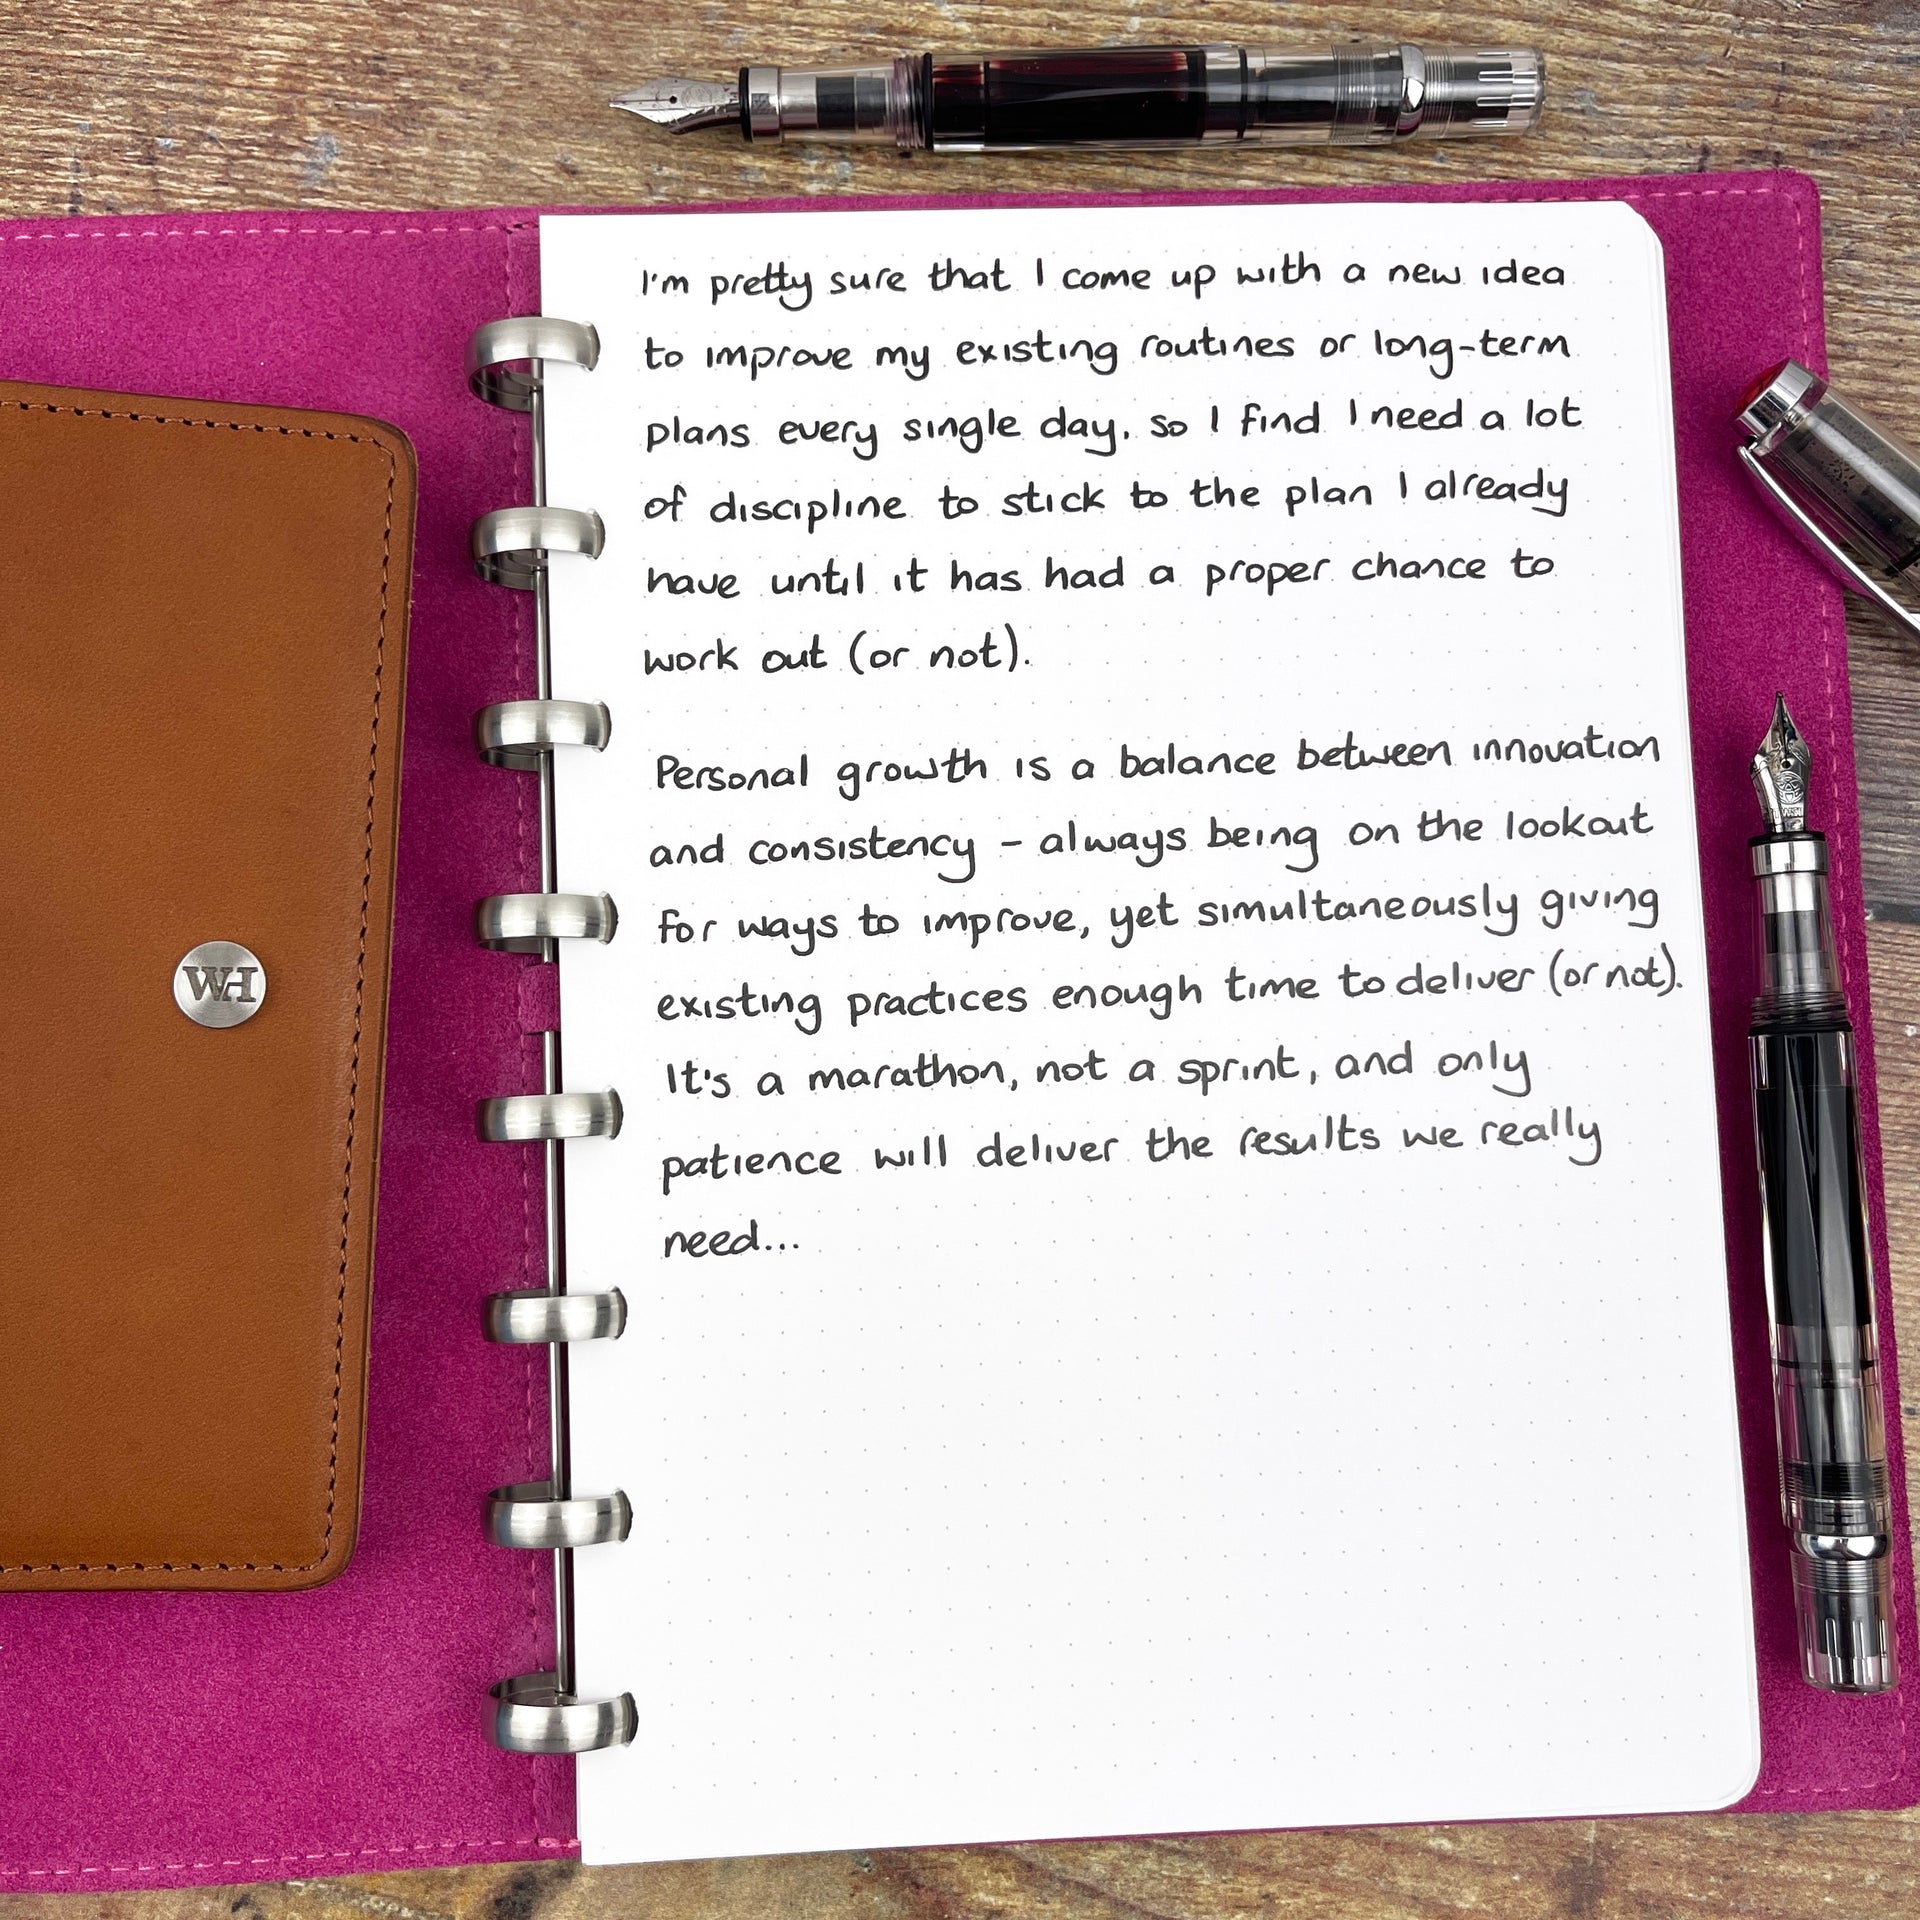 I'm pretty sure that I come up with a new idea
to improve my existing routines or long-term
plans every single day, so I find I need a lot
of discipline to stick to the plan I already
have until it has had a proper chance to
work out (or not).
Personal growth is a balance between innovation
and consistency - always being on the lookout
for ways to improve, yet simultaneously giving
existing practices enough time to deliver (or not).
It's a marathon, not a sprint, and only
patience will deliver the results we really
need...
WH